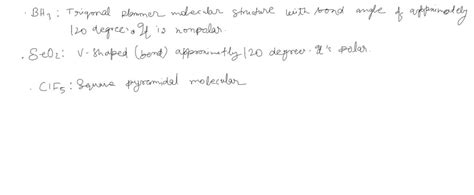 . BH3 : Trigonal planner molecular structure with bond angle of approximately
120 degree. It is nonpolar.
. SeO2 : V-shaped (bond) approximatly 120 degree. It's polar.
. ClF5 : Square pyramidal molecular